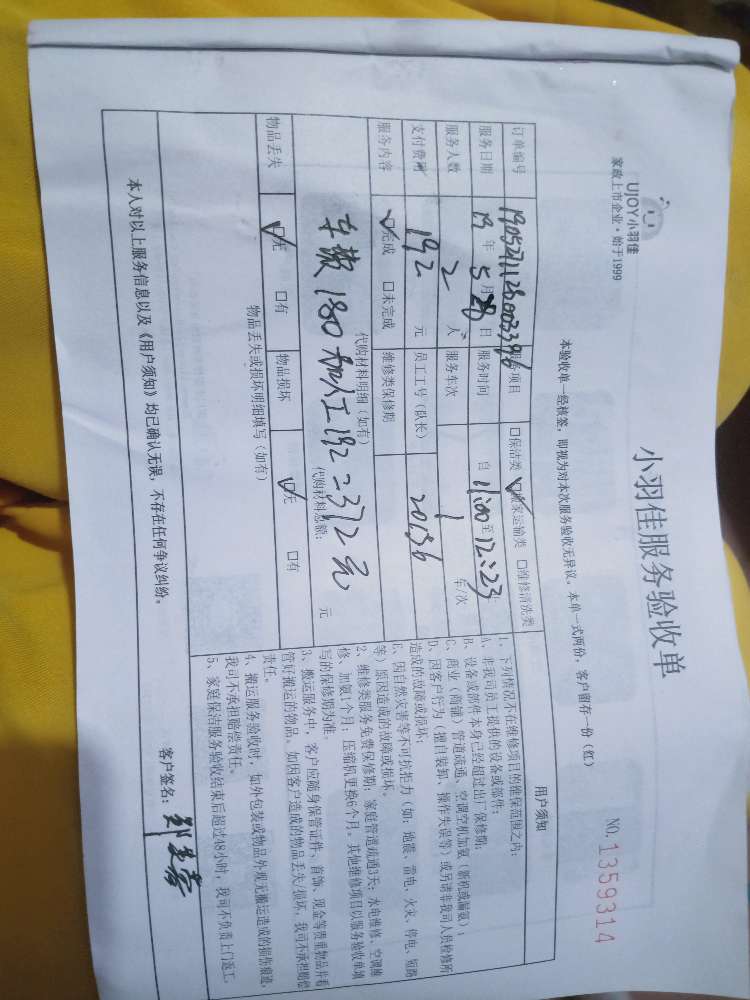 UJOY小羽佳
家政上市企业·始于1999
小羽佳服务验收单
NO.1359314
本验收单一经核签，即视为对本次服务验收无异议。本单一式两份，客户留存一份（红）
订单编号 190527112800033996 服务项目 口保洁类 ☑搬家运输类 口维修清洗类
服务日期 19年5月28日 服务时间 自11:00至12:23
服务人数 2人 服务车次 1车/次
支付费用 192元 员工工号（队长） 20156
服务内容 ☑完成 口未完成 维修类保修期
代购材料明细（如有）
车费180元 人工192=372元
代购材料总额： 元
物品丢失 ☑无 口有 物品损坏 ☑无 口有
物品丢失或损坏明细填写（如有）
用户须知
1、下列情况不在维修项目的维保范围之内：
A、非我司员工提供的设备或部件；
B、设备或部件本身已经超过出厂保修期；
C、商业（商铺）管道疏通、空调空机加氨（新机或漏氨）；
D、因客户行为（擅自装卸、操作失误等）或另请非我司人员检修所
造成的故障或损坏；
E、因自然灾害等不可抗拒力（如：地震、雷电、火灾、停电、短路
等）原因造成的故障或损坏。
2、维修类服务免费保修期：家庭管道疏通3天；水电维修、空调维
修、加氨1个月；压缩机更换6个月。其他维修项目以服务验收单填
写的保修期为准。
3、搬运服务中，客户应随身保管证件、首饰、现金等贵重物品并看
管好搬运的物品。如因客户造成的物品丢失/损坏，我司不承担赔偿
责任。
4、搬运服务验收时，如外包装或物品外观无搬运造成的损伤痕迹，
我司不承担赔偿责任。
5、家庭保洁服务验收结束后超过48小时，我司不负责上门返工。
本人对以上服务信息以及《用户须知》均已确认无误，不存在任何争议纠纷。
客户签名：